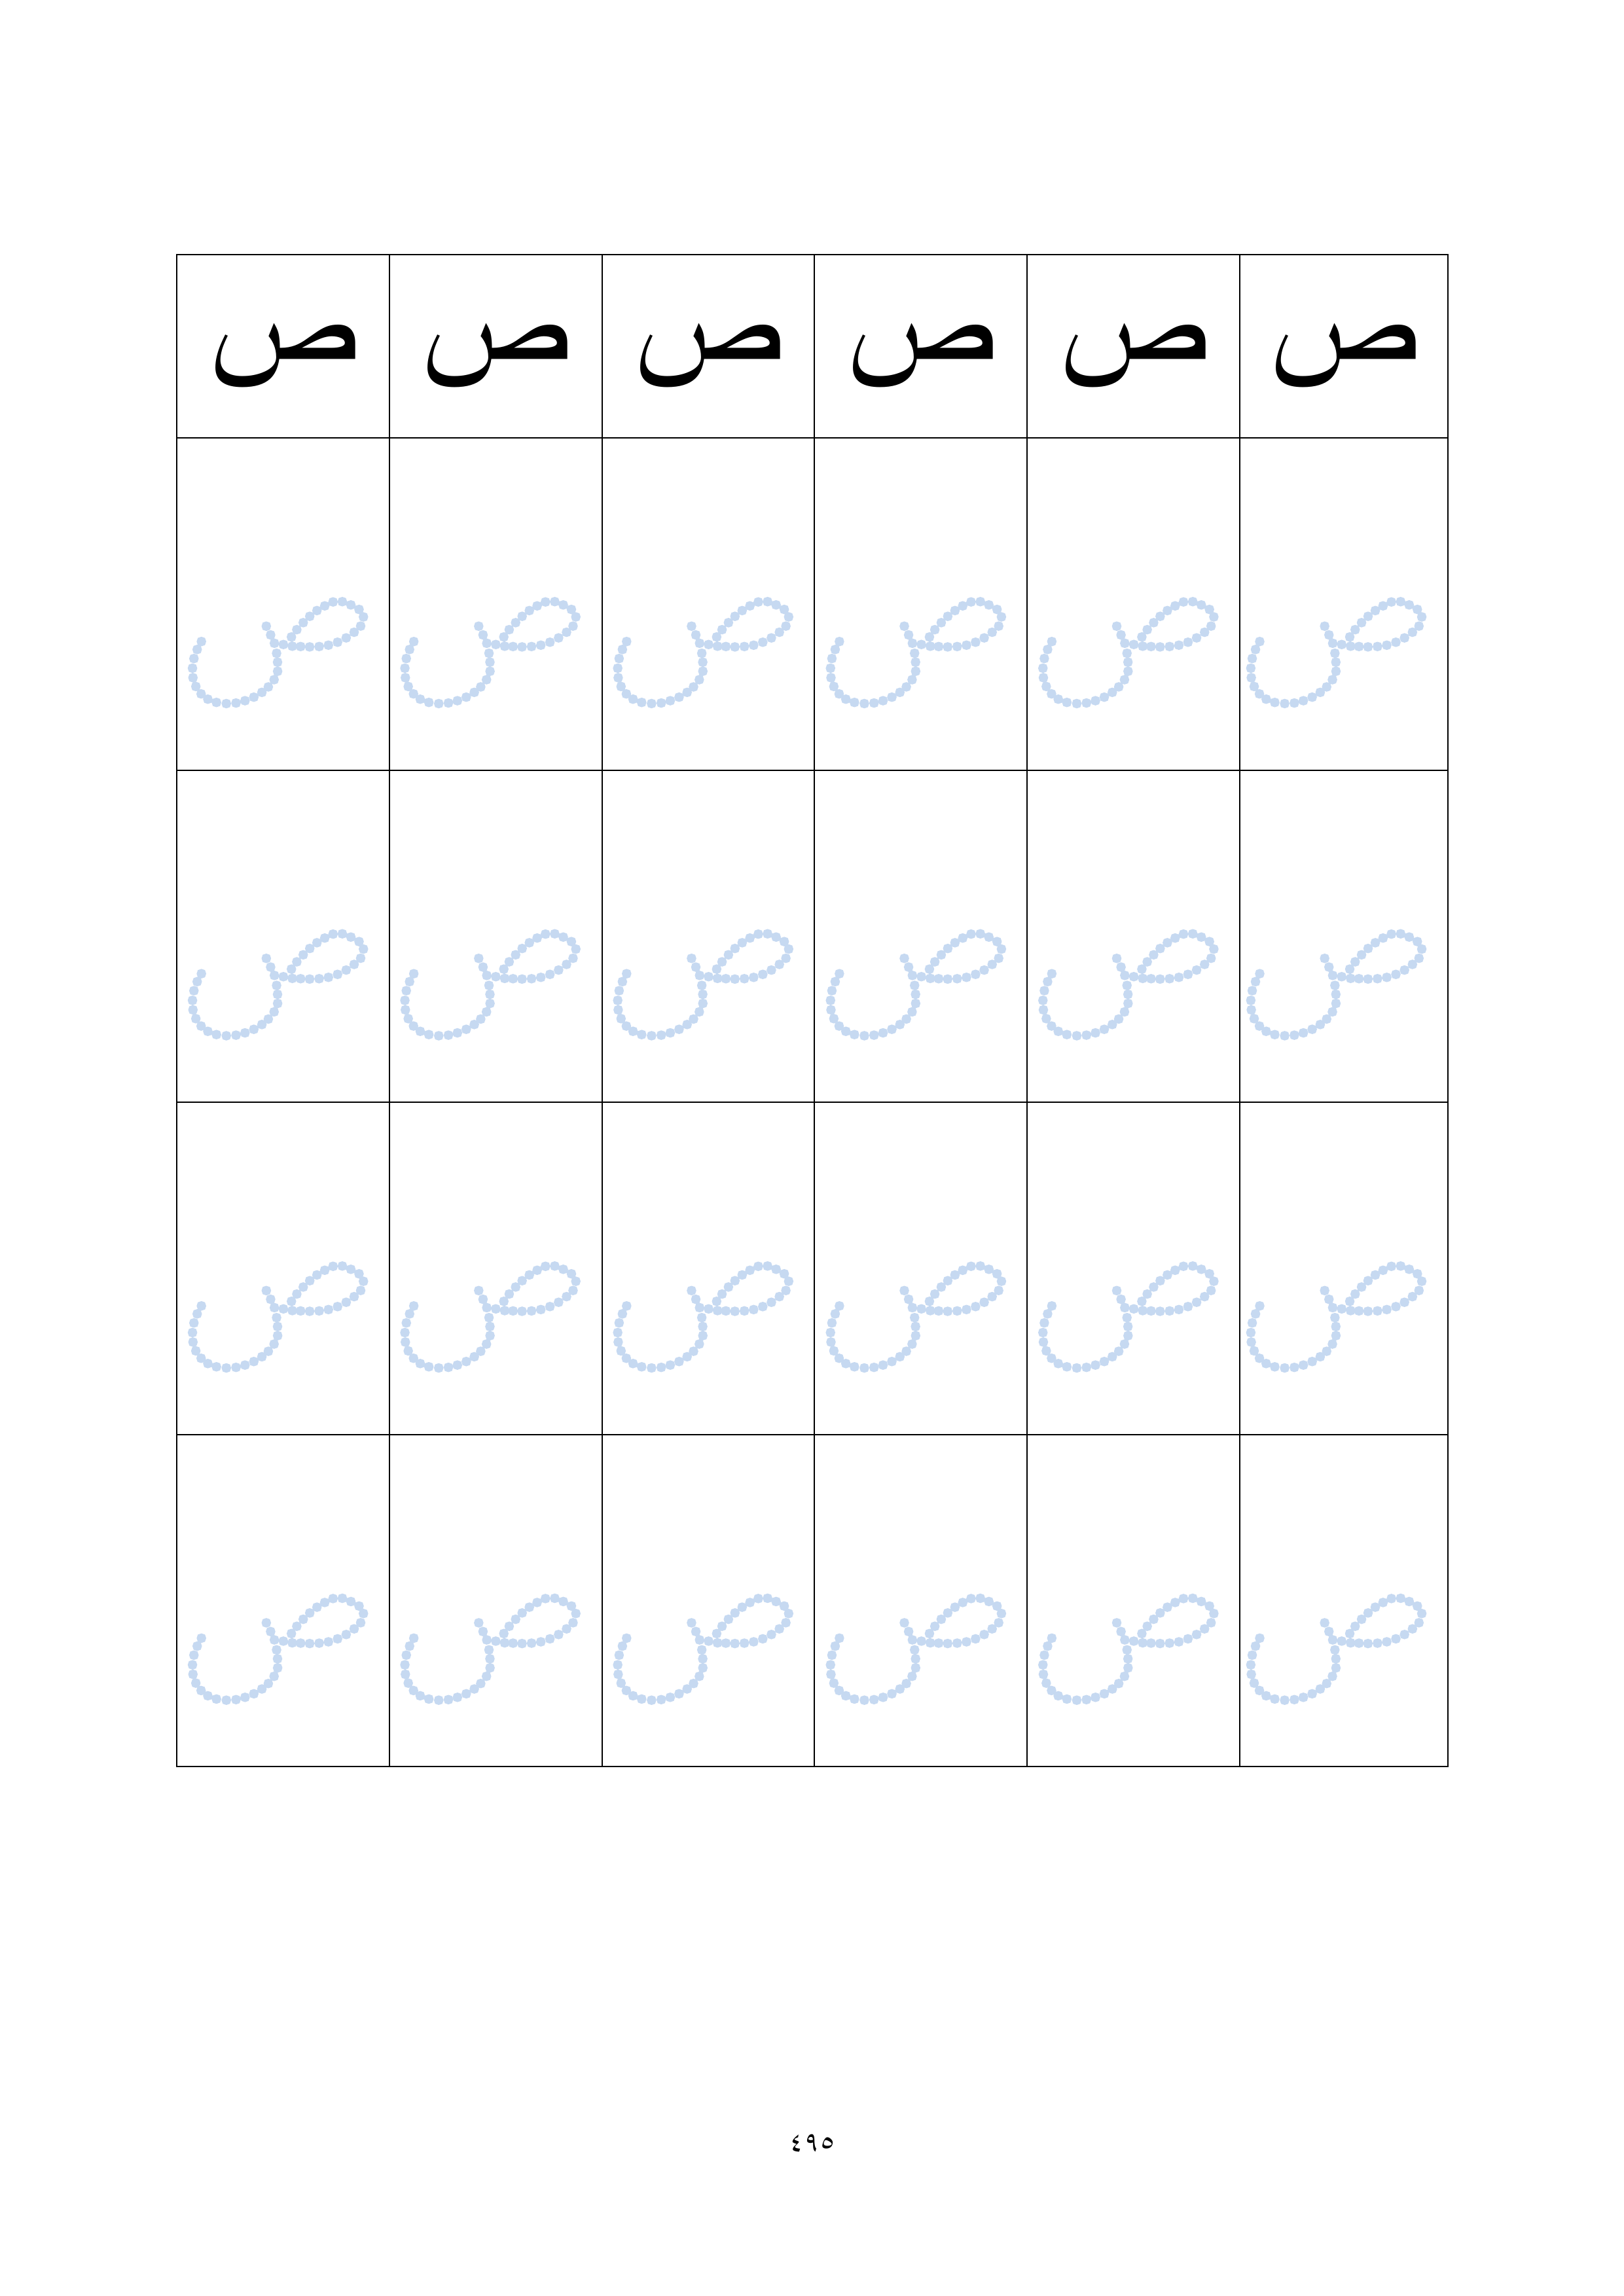 ص ص ص ص ص ص
ص ص ص ص ص ص
ص ص ص ص ص ص
ص ص ص ص ص ص
ص ص ص ص ص ص
٤٩٥